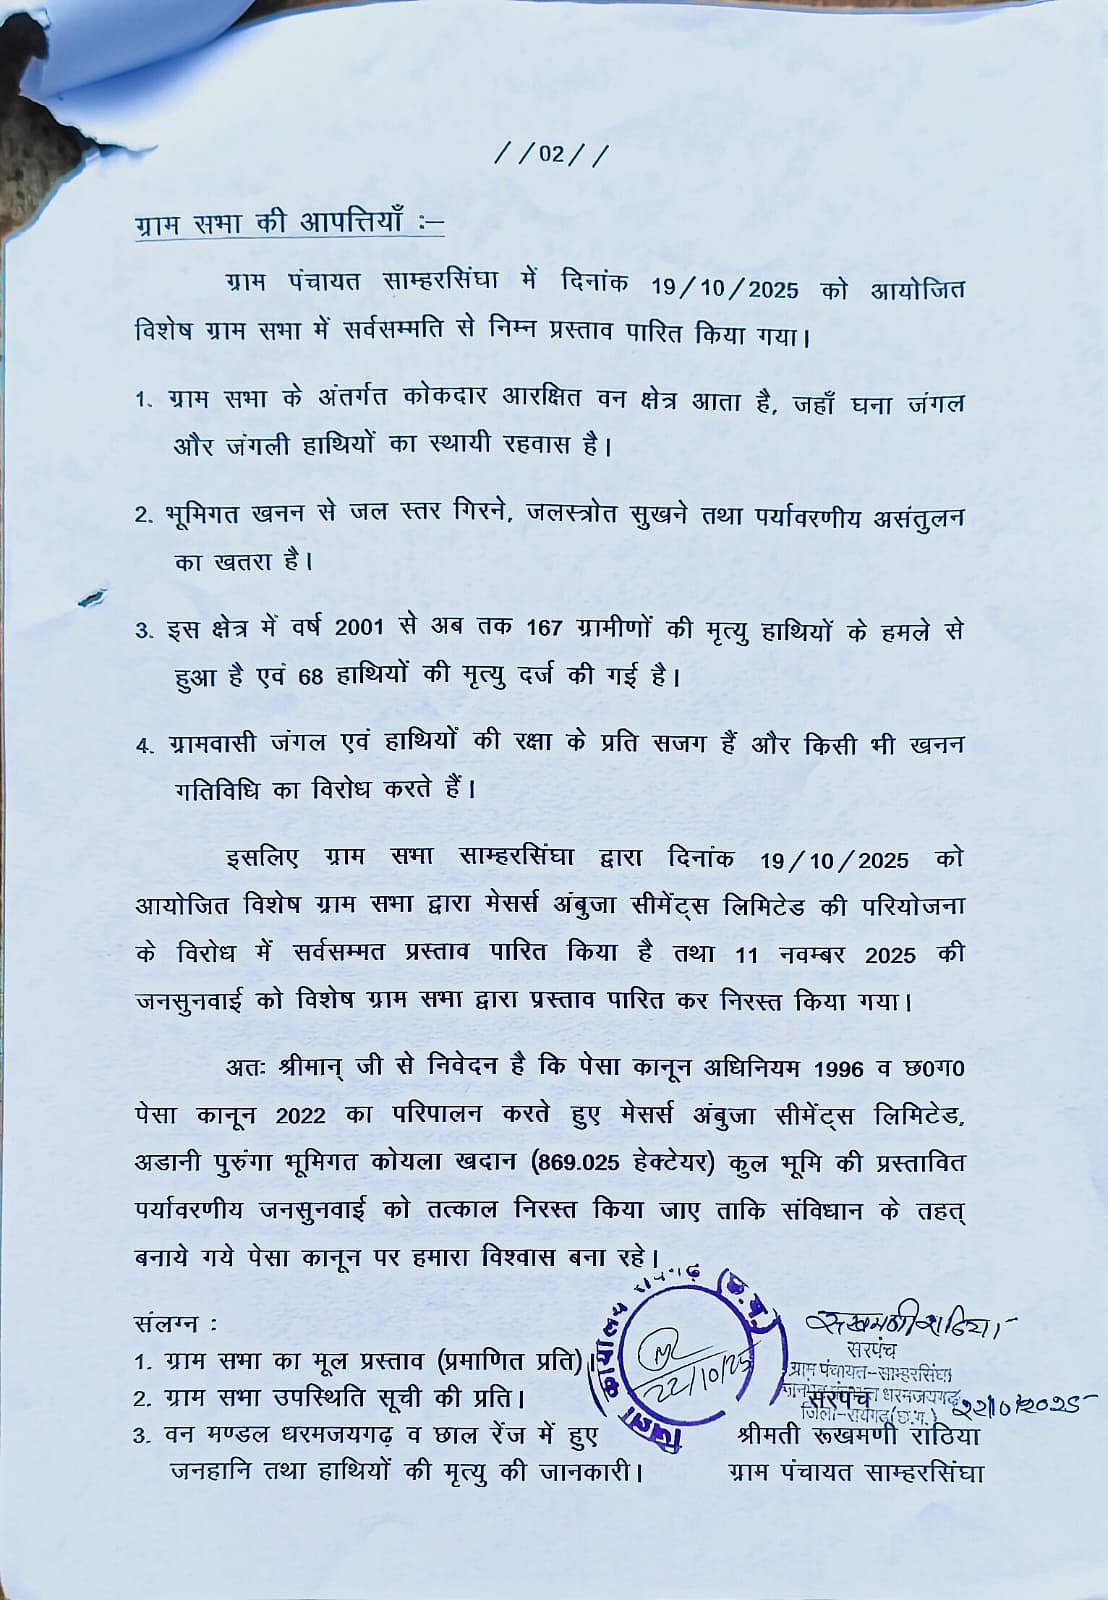 //02//
ग्राम सभा की आपत्तियाँ :–
ग्राम पंचायत साम्हरसिंघा में दिनांक 19/10/2025 को आयोजित
विशेष ग्राम सभा में सर्वसम्मति से निम्न प्रस्ताव पारित किया गया।
1. ग्राम सभा के अंतर्गत कोकदार आरक्षित वन क्षेत्र आता है, जहाँ घना जंगल
और जंगली हाथियों का स्थायी रहवास है।
2. भूमिगत खनन से जल स्तर गिरने, जलस्त्रोत सुखने तथा पर्यावरणीय असंतुलन
का खतरा है।
3. इस क्षेत्र में वर्ष 2001 से अब तक 167 ग्रामीणों की मृत्यु हाथियों के हमले से
हुआ है एवं 68 हाथियों की मृत्यु दर्ज की गई है।
4. ग्रामवासी जंगल एवं हाथियों की रक्षा के प्रति सजग हैं और किसी भी खनन
गतिविधि का विरोध करते हैं।
इसलिए ग्राम सभा साम्हरसिंघा द्वारा दिनांक 19/10/2025 को
आयोजित विशेष ग्राम सभा द्वारा मेसर्स अंबुजा सीमेंट्स लिमिटेड की परियोजना
के विरोध में सर्वसम्मत प्रस्ताव पारित किया है तथा 11 नवम्बर 2025 की
जनसुनवाई को विशेष ग्राम सभा द्वारा प्रस्ताव पारित कर निरस्त किया गया।
अतः श्रीमान् जी से निवेदन है कि पेसा कानून अधिनियम 1996 व छ0ग0
पेसा कानून 2022 का परिपालन करते हुए मेसर्स अंबुजा सीमेंट्स लिमिटेड,
अडानी पुरुंगा भूमिगत कोयला खदान (869.025 हेक्टेयर) कुल भूमि की प्रस्तावित
पर्यावरणीय जनसुनवाई को तत्काल निरस्त किया जाए ताकि संविधान के तहत्
बनाये गये पेसा कानून पर हमारा विश्वास बना रहे।
संलग्न :
1. ग्राम सभा का मूल प्रस्ताव (प्रमाणित प्रति)।
2. ग्राम सभा उपस्थिति सूची की प्रति।
3. वन मण्डल धरमजयगढ़ व छाल रेंज में हुए
जनहानि तथा हाथियों की मृत्यु की जानकारी।
जिला कार्यालय रायगढ़ (छ.ग.)
22/10/25
रूखमणी राठिया
सरपंच
ग्राम पंचायत-साम्हरसिंघा
धरमजयगढ़
जिला-रायगढ़(छ.ग.)
22/10/2025
सरपंच
श्रीमती रूखमणी राठिया
ग्राम पंचायत साम्हरसिंघा